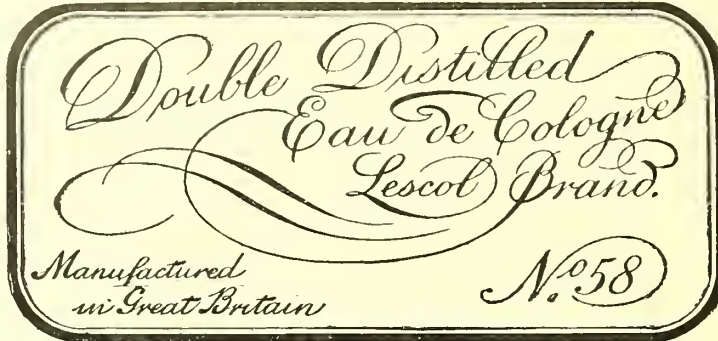 Double Distilled
Eau de Cologne
Lescol Brand.
Manufactured
in Great Britain
No. 58